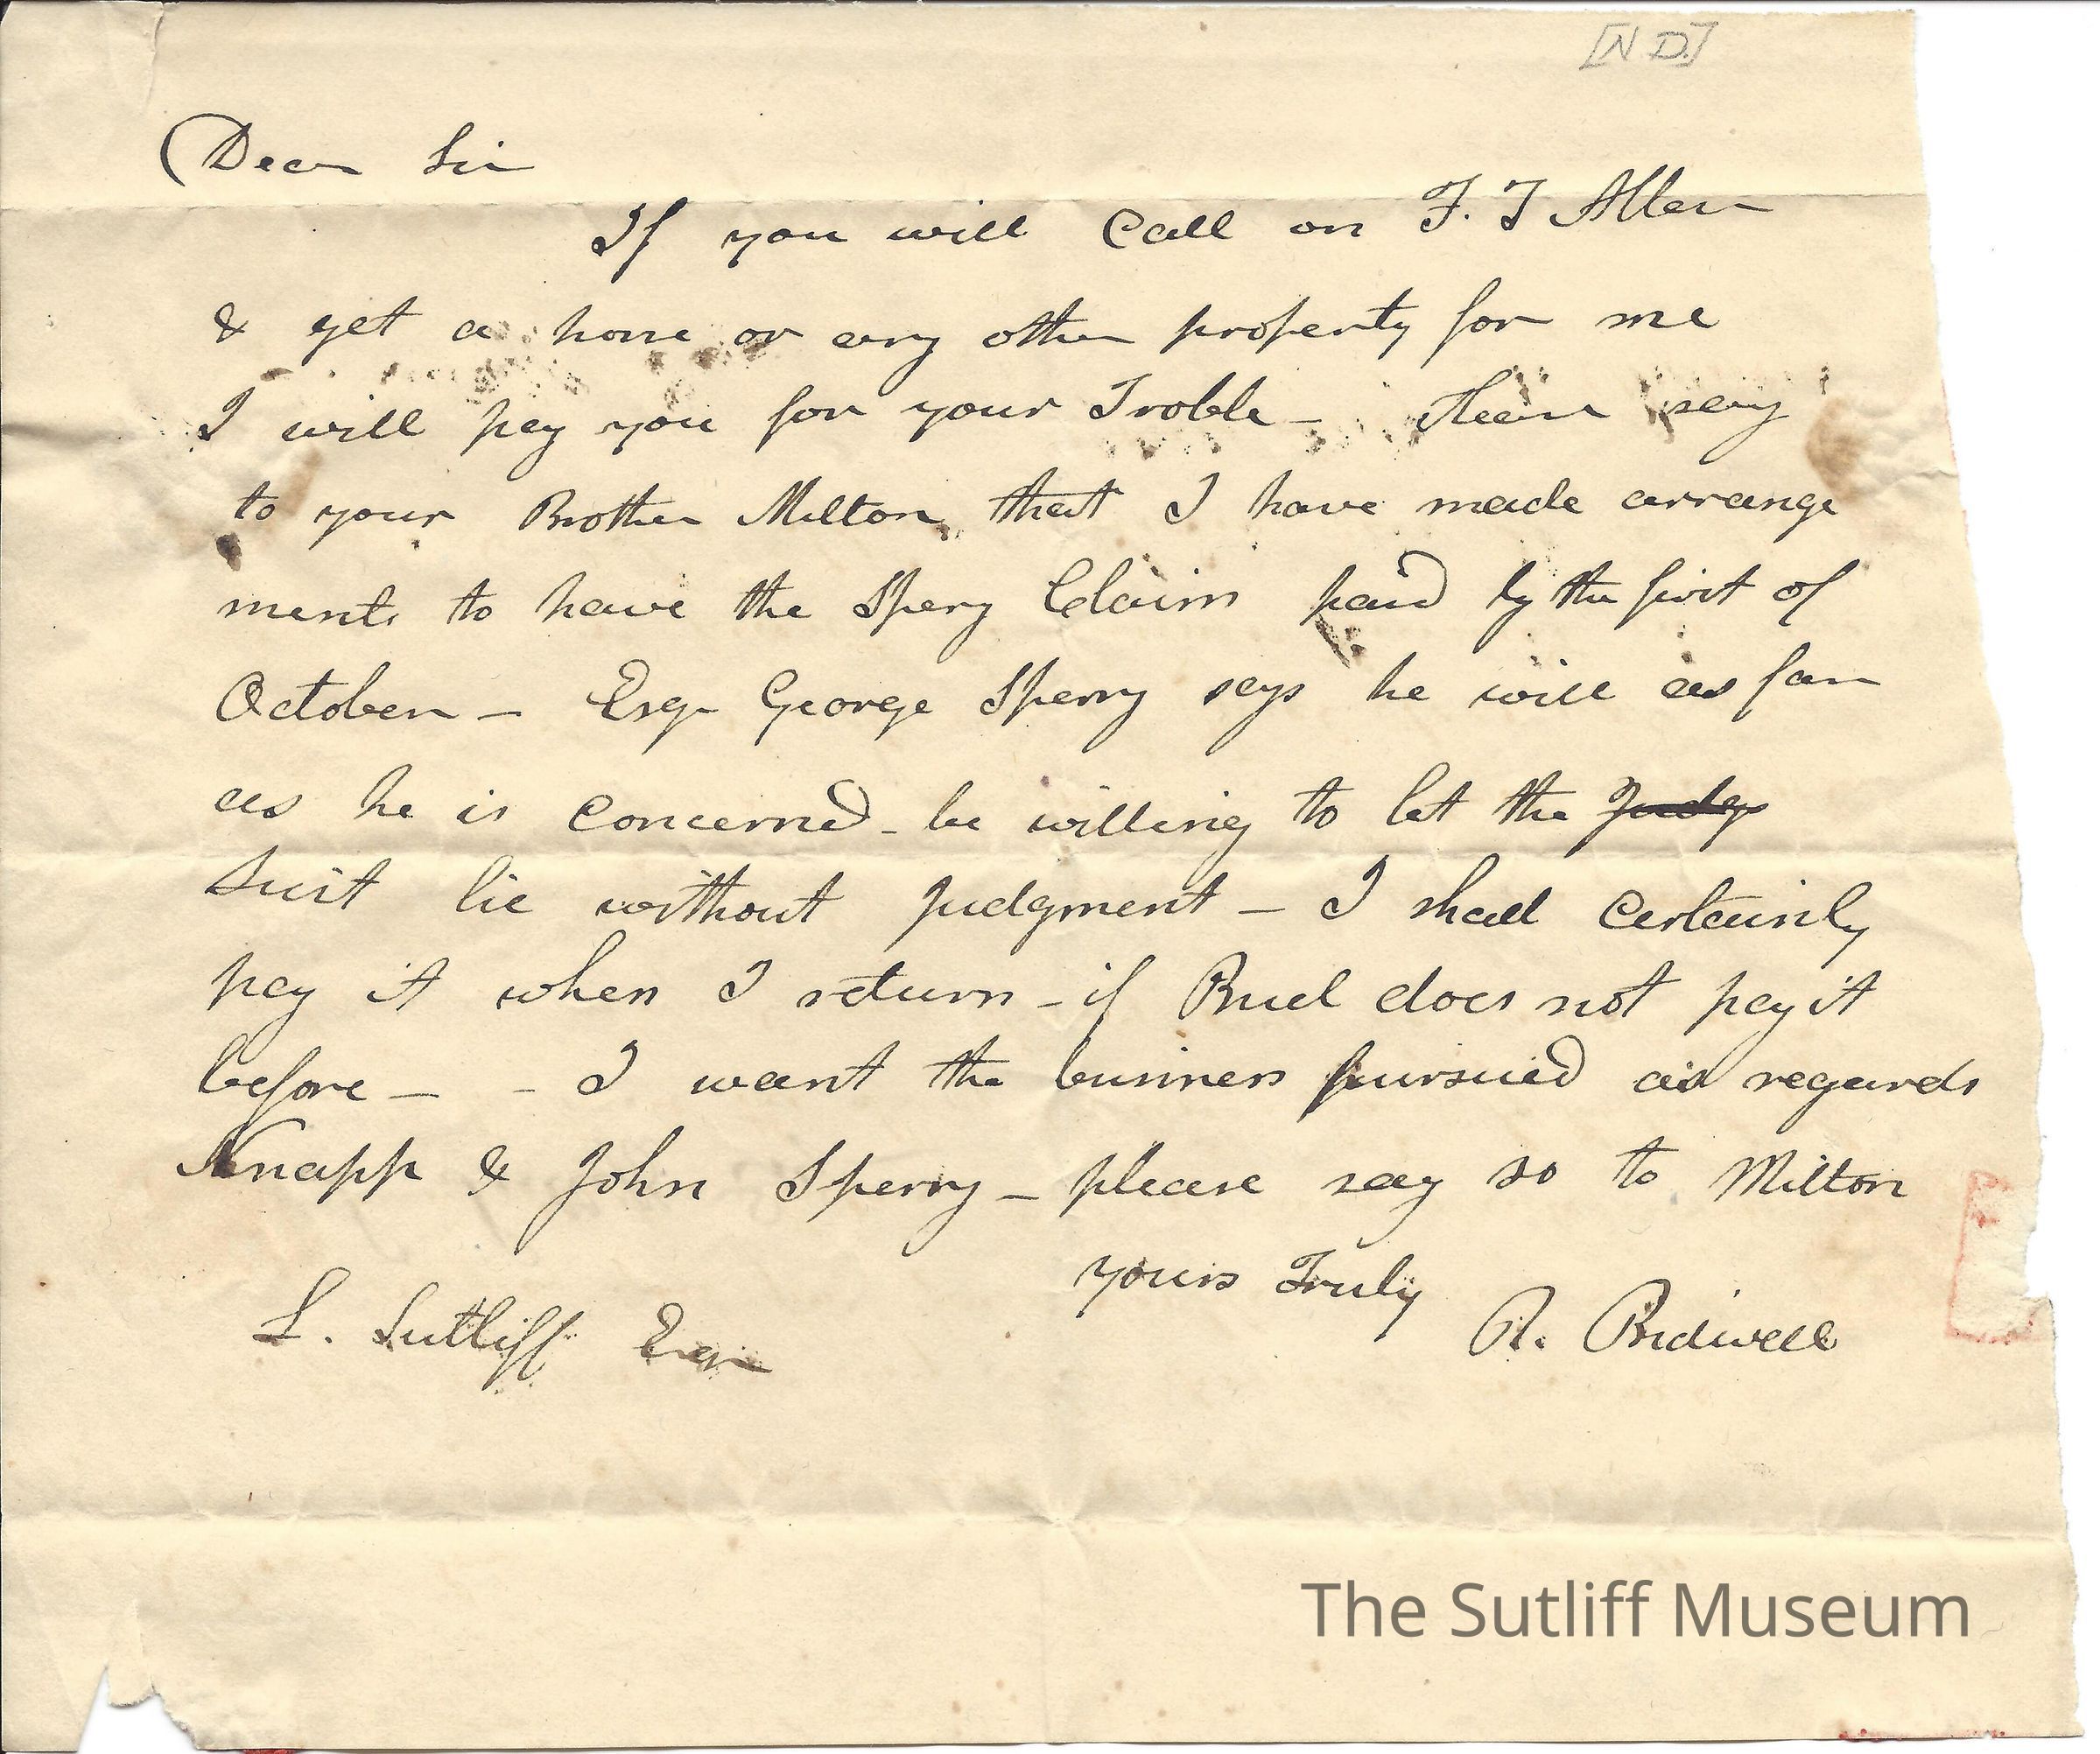 [N D.]
Dear Sir
If you will Call on F. T Allen
& get a horse or any other property for me
I will pay you for your Troble – Then say
to your Brother Milton that I have made arrange
ments to have the Spery Claim paid by the first of
October – Esqr George Sperry says he will as far
as he is Concerned – be willing to let the Judg
Suit lie without Judgment – I shall Certainly
pay it when I return – if Buel does not pay it
before – – I want the business pursued as regards
Knapp & John Sperry – please say so to Milton
yours Truly
L. Sutliff Esqr R. Bidwell
The Sutliff Museum